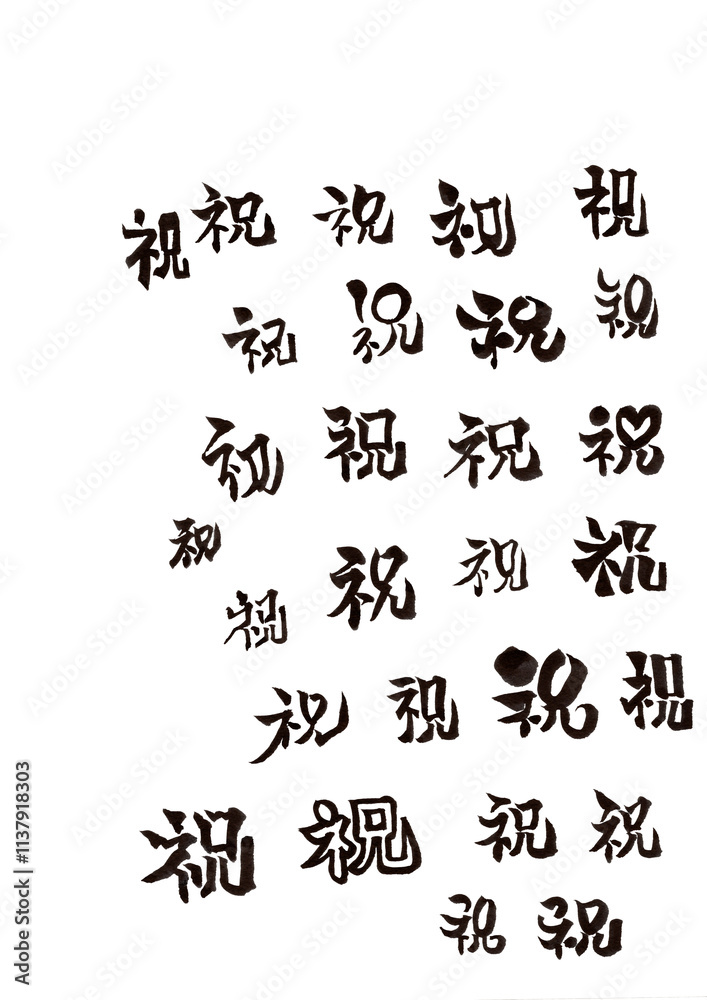 祝 祝 祝 祝 祝
祝 祝 祝 祝
祝 祝 祝 祝
祝 祝 祝 祝
祝
祝 祝 祝 祝
祝 祝 祝 祝
祝 祝
Adobe Stock | #1137918303